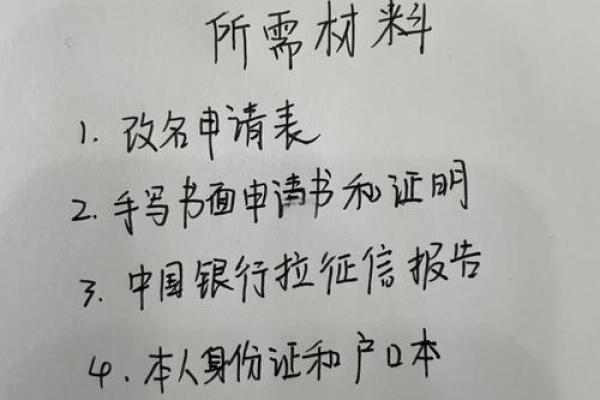 所需材料
1. 改名申请表
2. 手写书面申请书和证明
3. 中国银行拉征信报告
4. 本人身份证和户口本